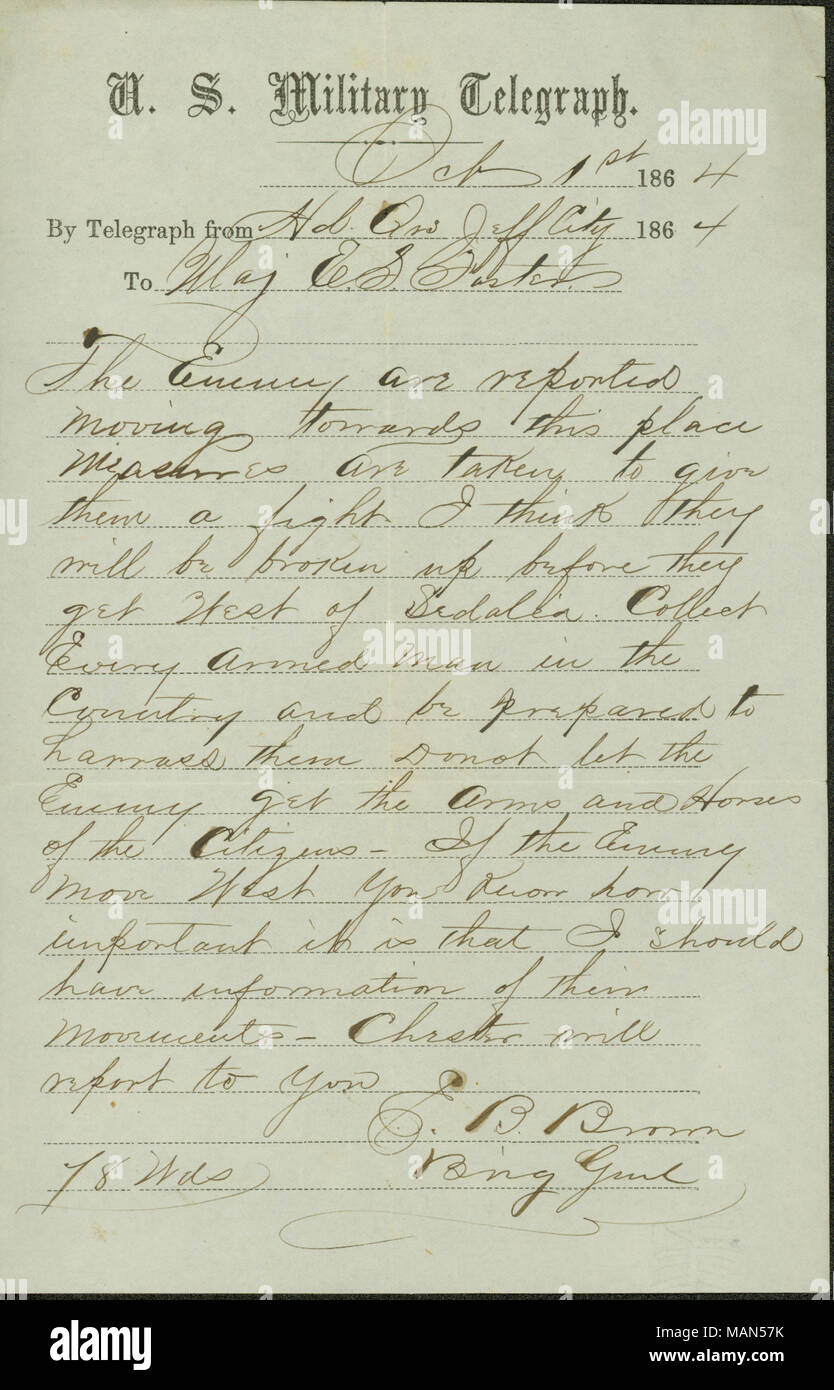 U. S. Military Telegraph.
Oct 1st 1864
By Telegraph from Hd. Qrs Jeff City 1864
To Maj E. S. Foster
The Enemy are reported
moving towards this place
Measures are taken to give
them a fight I think they
will be broken up before they
get West of Sedalia. Collect
Every armed man in the
Country and be prepared to
harrass them Do not let the
Enemy get the arms and Horses
of the Citizens - If the Enemy
move West You Know how
important it is that I should
have information of their
movements - Chester will
report to You
E. B. Brown
78 Wds Brig Genl
alamy
alamy
Image ID: MAN57K
www.alamy.com